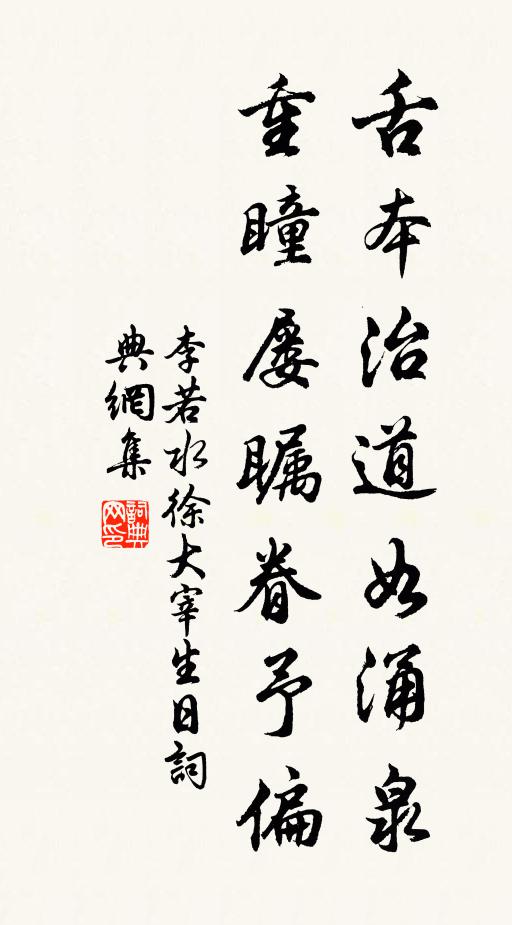 舌本治道如涌泉
重瞳屡瞩眷予偏
李若水徐大宰生日詞
典網集
詞典網印